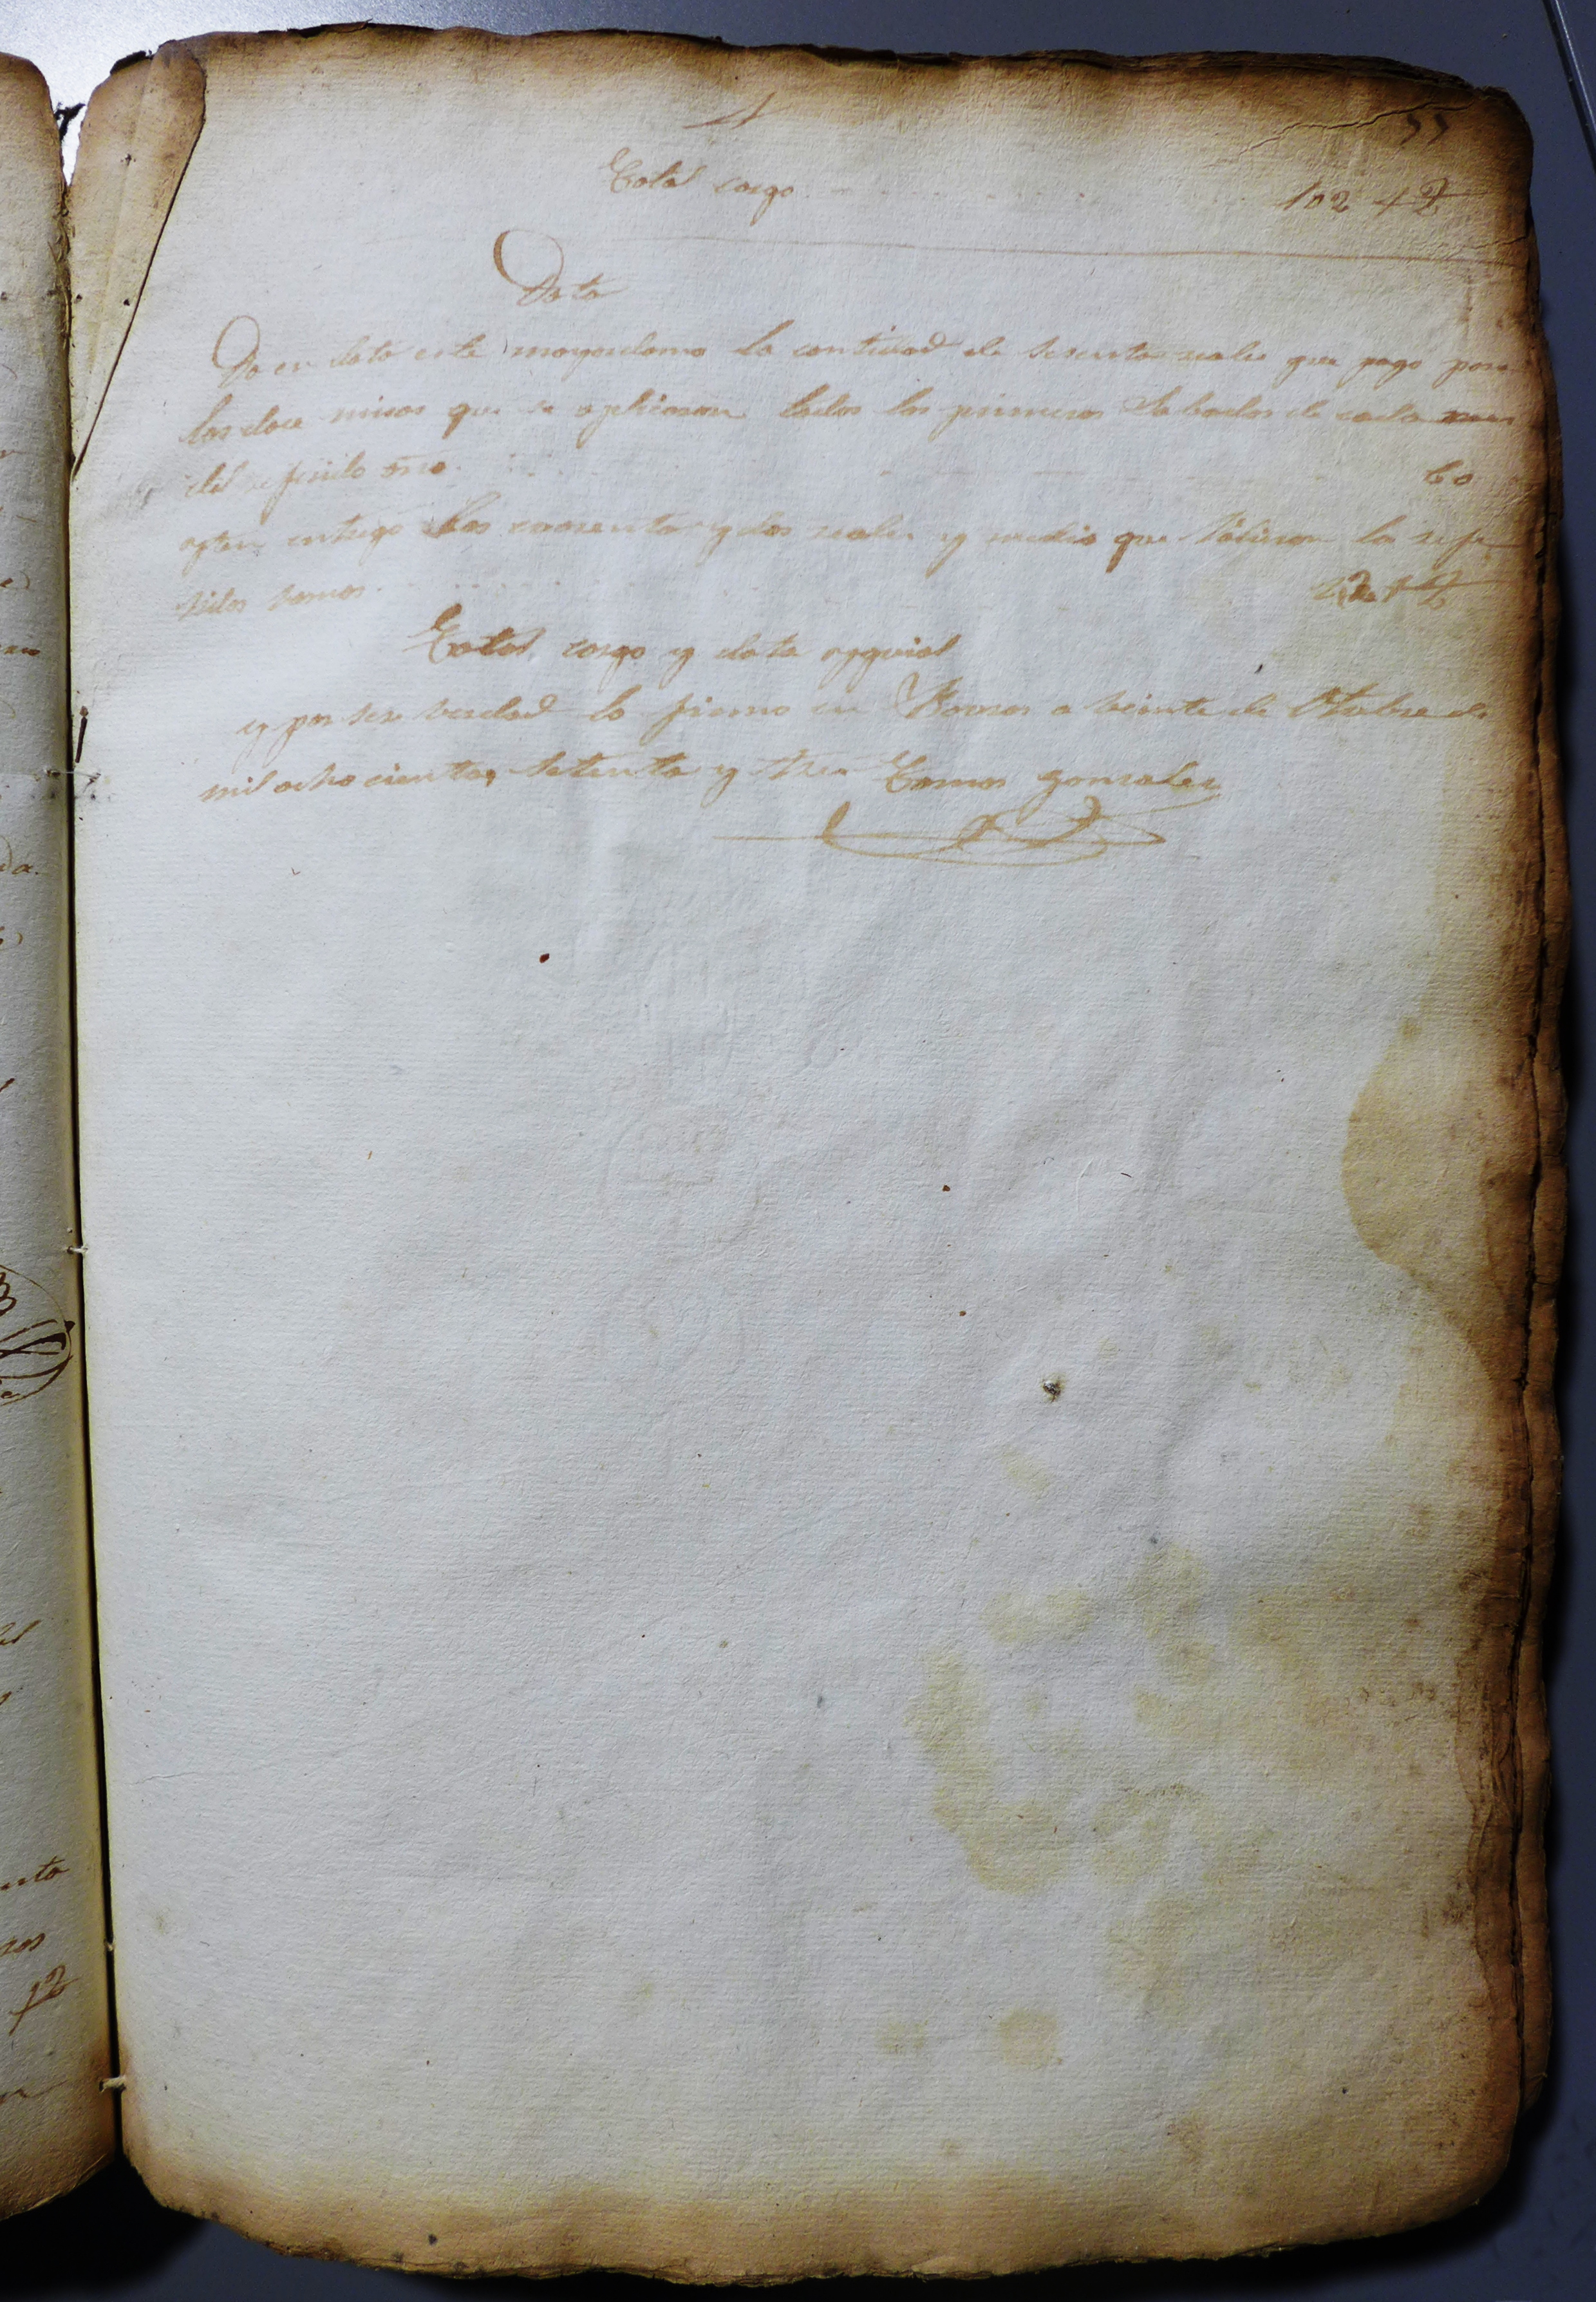 55
Total cargo 102 +½
Data
Da en data este mayordomo la cantidad de sesenta reales que pago por
las doce misas que se aplicaron todos los primeros Sabados de cada mes
del referido año. 60
yten entrego los cuarenta y dos reales y medio que balieron la refe
ridos ramos
Total cargo y data ygual
y por ser berdad lo firmo en a beinte de Otubre de
mil ochocientos setenta y tres Tomas Gonzalez